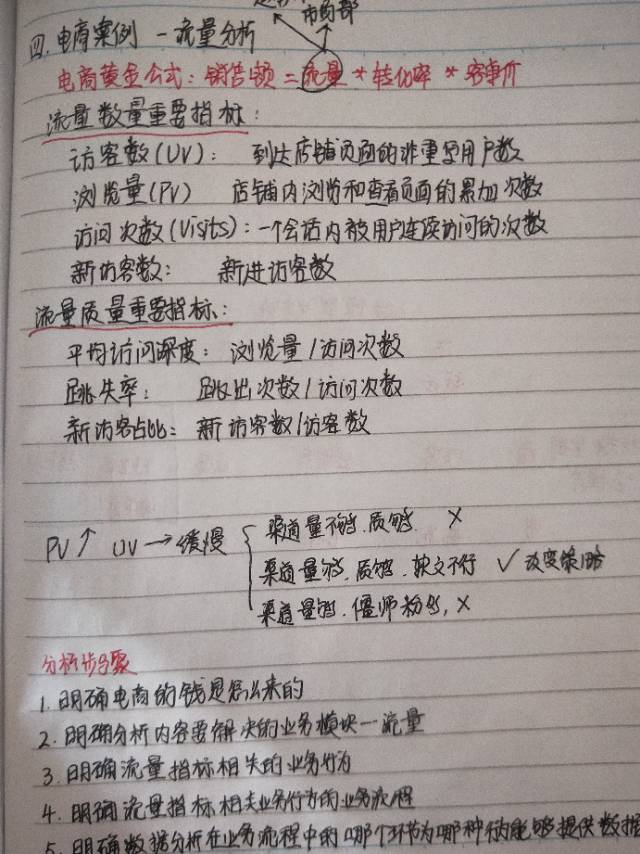 市场部
四.电商案例 一流量分析
电商黄金公式：销售额 = 流量 * 转化率 * 客单价
流量数量重要指标：
访客数(UV)： 到达店铺页面的非重复用户数
浏览量(PV) 店铺内浏览和查看页面的累加次数
访问次数(Visits)：一个会话内被用户连续访问的次数
新访客数： 新进访客数
流量质量重要指标：
平均访问深度：浏览量/访问次数
跳失率： 跳出次数/访问次数
新访客占比：新访客数/访客数
渠道量不够.质够. ×
PV↑ UV→缓慢
渠道量够.质够.软文不行 ✓ 改变策略
渠道量够.僵师粉多,×
分析步骤
1.明确电商的钱是怎么来的
2.明确分析内容要解决的业务模块一流量
3.明确流量指标相关的业务行为
4.明确流量指标相关业务行为的业务流程
5.明确数据分析在业务流程中的哪个环节为哪种行为能够提供数据